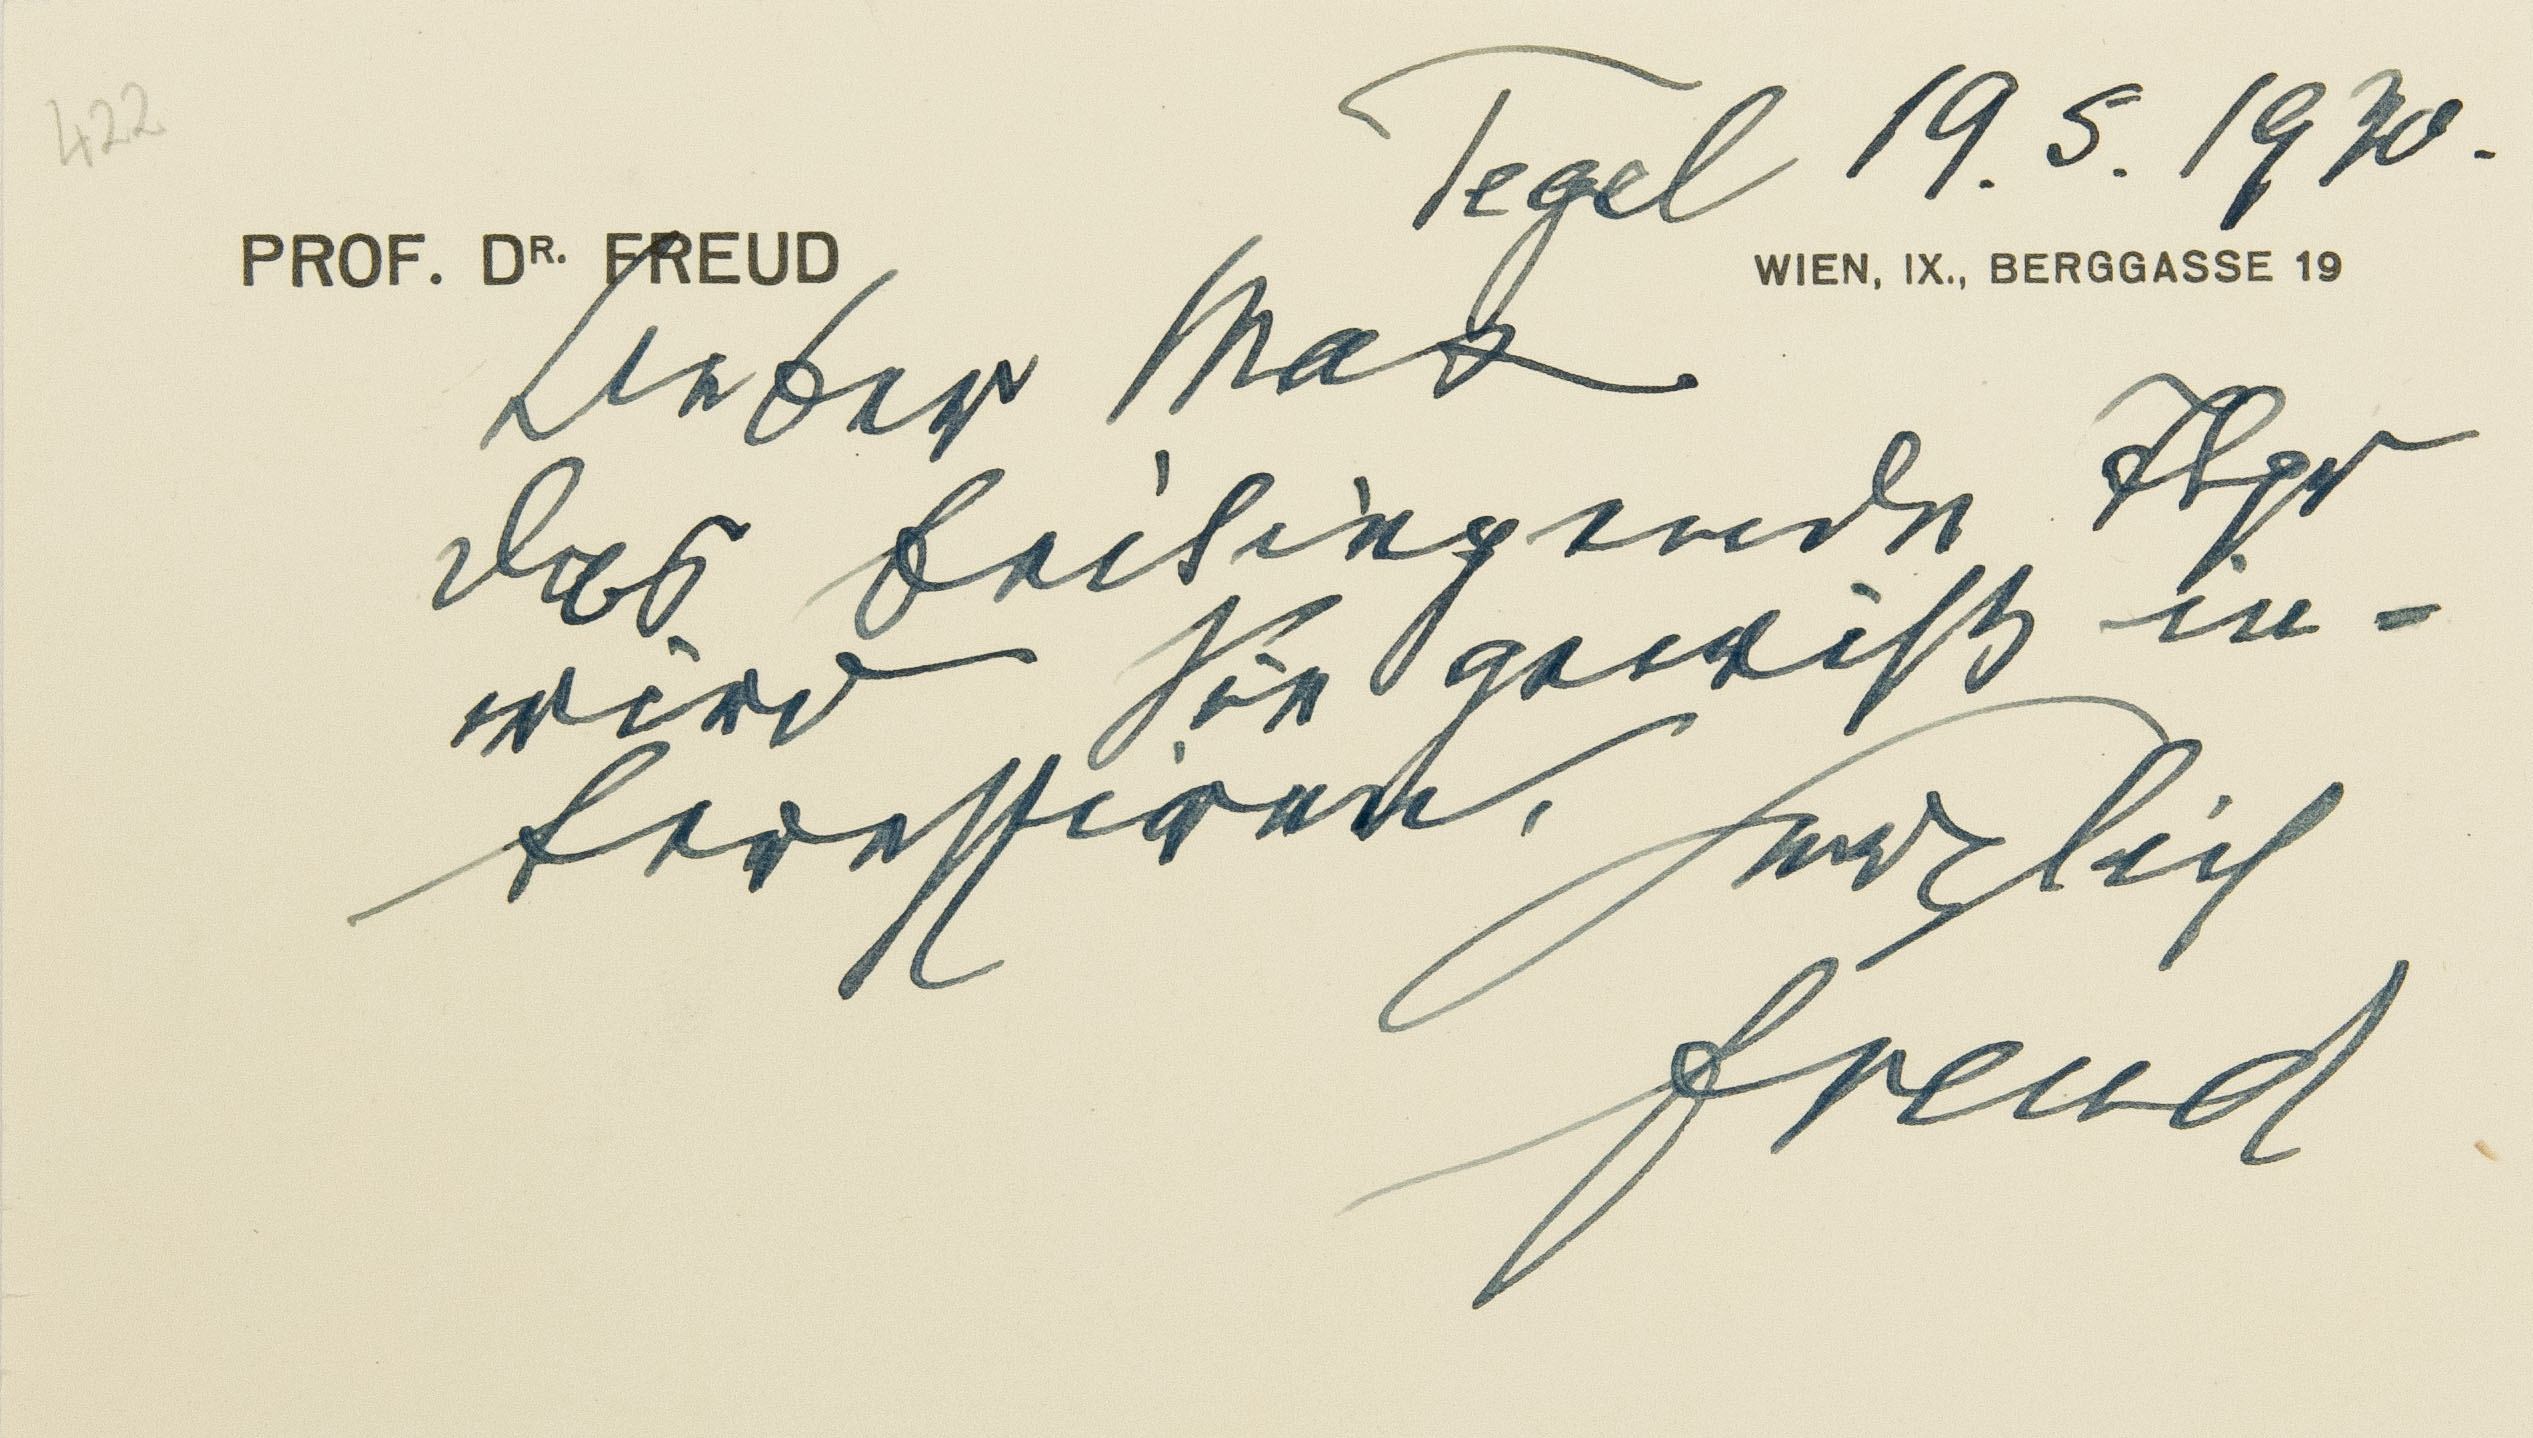 422
Tegel 19. 5. 1930.
PROF. DR. FREUD
WIEN, IX., BERGGASSE 19
Lieber Max
Das beiliegende
wird Sie gewiß in-
teressiren.
Herzlich
Freud